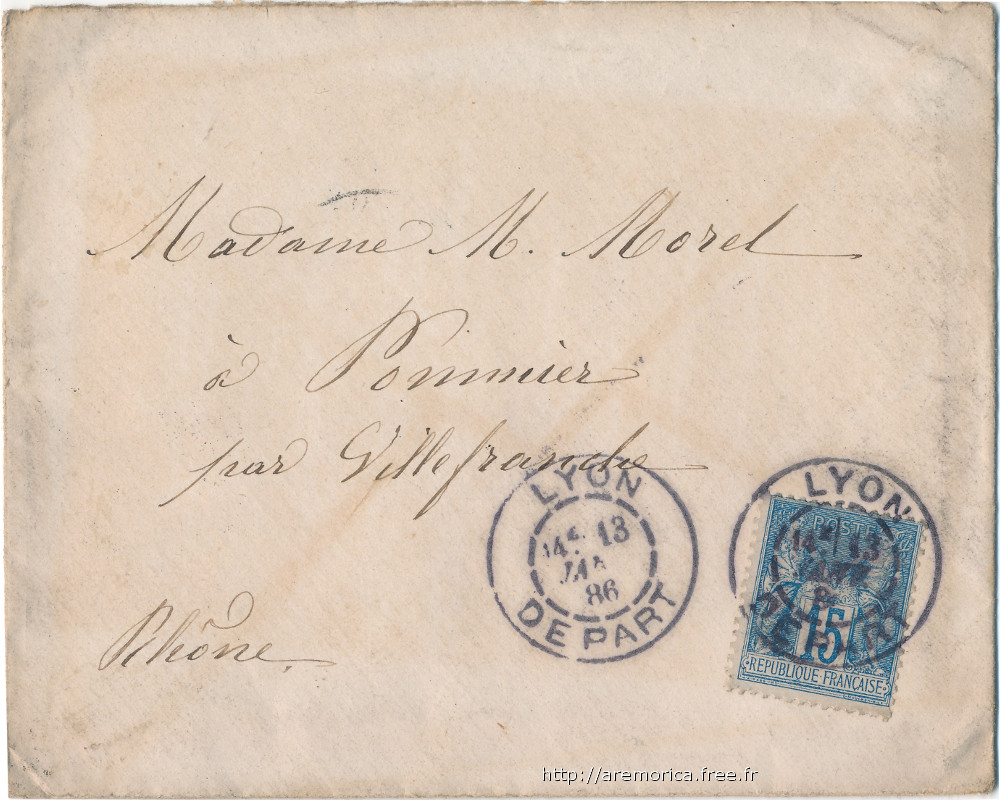 Madame M. Morel
à Pommier
par Villefranche
Rhône
LYON
14E 13
JAN
86
DEPART
LYON
14E 13
DEPART
POSTE
15
REPUBLIQUE FRANÇAISE
http://aremorica.free.fr